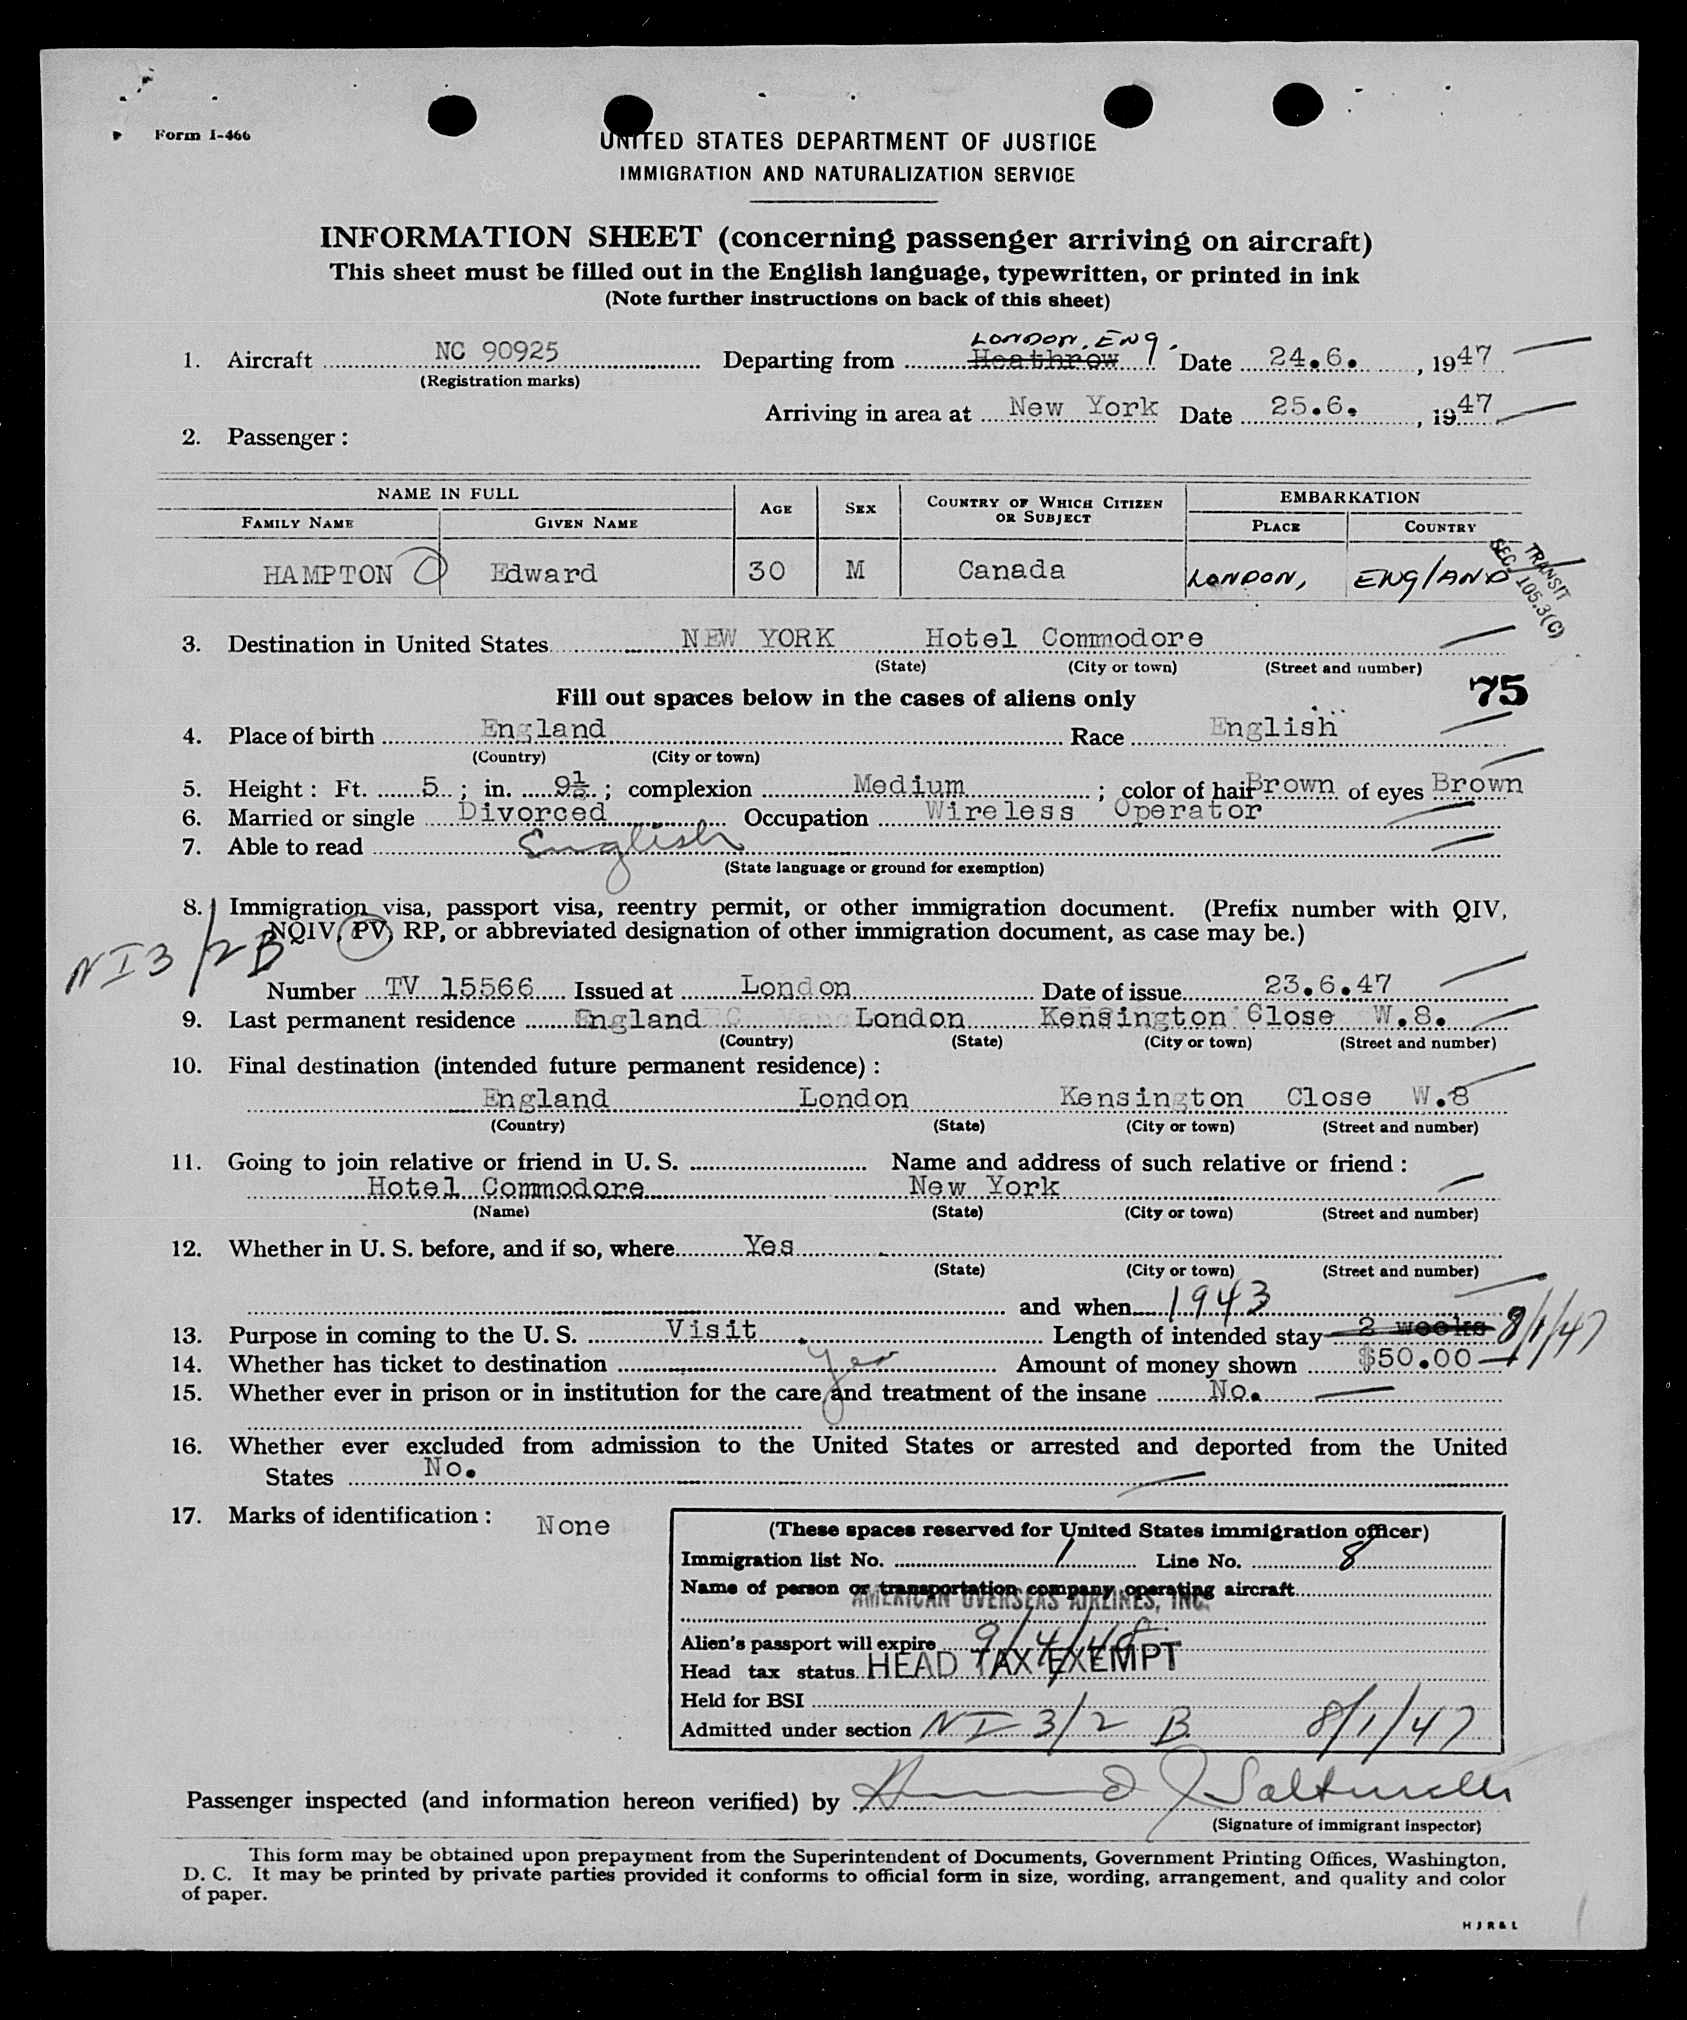 Form I-466
UNITED STATES DEPARTMENT OF JUSTICE
IMMIGRATION AND NATURALIZATION SERVICE
INFORMATION SHEET (concerning passenger arriving on aircraft)
This sheet must be filled out in the English language, typewritten, or printed in ink
(Note further instructions on back of this sheet)
LONDON, ENG.
1. Aircraft NC 90925 Departing from Heathrow Date 24.6. , 1947
(Registration marks)
Arriving in area at New York Date 25.6. , 1947
2. Passenger:
NAME IN FULL AGE SEX COUNTRY OF WHICH CITIZEN OR SUBJECT EMBARKATION
FAMILY NAME GIVEN NAME PLACE COUNTRY
HAMPTON Edward 30 M Canada LONDON, ENGLAND
TRANSIT
SEC. 105.3(C)
3. Destination in United States NEW YORK Hotel Commodore
(State) (City or town) (Street and number)
Fill out spaces below in the cases of aliens only 75
4. Place of birth England Race English
(Country) (City or town)
5. Height: Ft. 5 ; in. 9½ ; complexion Medium ; color of hair Brown of eyes Brown
6. Married or single Divorced Occupation Wireless Operator
7. Able to read English
(State language or ground for exemption)
8. Immigration visa, passport visa, reentry permit, or other immigration document. (Prefix number with QIV,
NQIV, PV, RP, or abbreviated designation of other immigration document, as case may be.)
NI 3/2 B
Number TV 15566 Issued at London Date of issue 23.6.47
9. Last permanent residence England London Kensington Close W.8.
(Country) (State) (City or town) (Street and number)
10. Final destination (intended future permanent residence):
England London Kensington Close W.8
(Country) (State) (City or town) (Street and number)
11. Going to join relative or friend in U. S. Name and address of such relative or friend:
Hotel Commodore New York
(Name) (State) (City or town) (Street and number)
12. Whether in U. S. before, and if so, where Yes
(State) (City or town) (Street and number)
and when 1943
13. Purpose in coming to the U. S. Visit Length of intended stay 2 weeks 8/1/47
14. Whether has ticket to destination Yes Amount of money shown $50.00
15. Whether ever in prison or in institution for the care and treatment of the insane No.
16. Whether ever excluded from admission to the United States or arrested and deported from the United
States No.
17. Marks of identification: None
(These spaces reserved for United States immigration officer)
Immigration list No. 1 Line No. 8
Name of person or transportation company operating aircraft
AMERICAN OVERSEAS AIRLINES, INC.
Alien's passport will expire 9/4/49
Head tax status HEAD TAX EXEMPT
Held for BSI
Admitted under section NI 3/2 B 8/1/47
Passenger inspected (and information hereon verified) by
(Signature of immigrant inspector)
This form may be obtained upon prepayment from the Superintendent of Documents, Government Printing Offices, Washington,
D. C. It may be printed by private parties provided it conforms to official form in size, wording, arrangement, and quality and color
of paper.
H J R & L